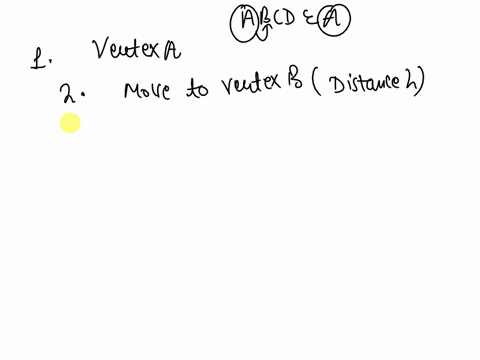 A B C D E A
1. Vertex A
2. Move to vertex B ( Distance 2)